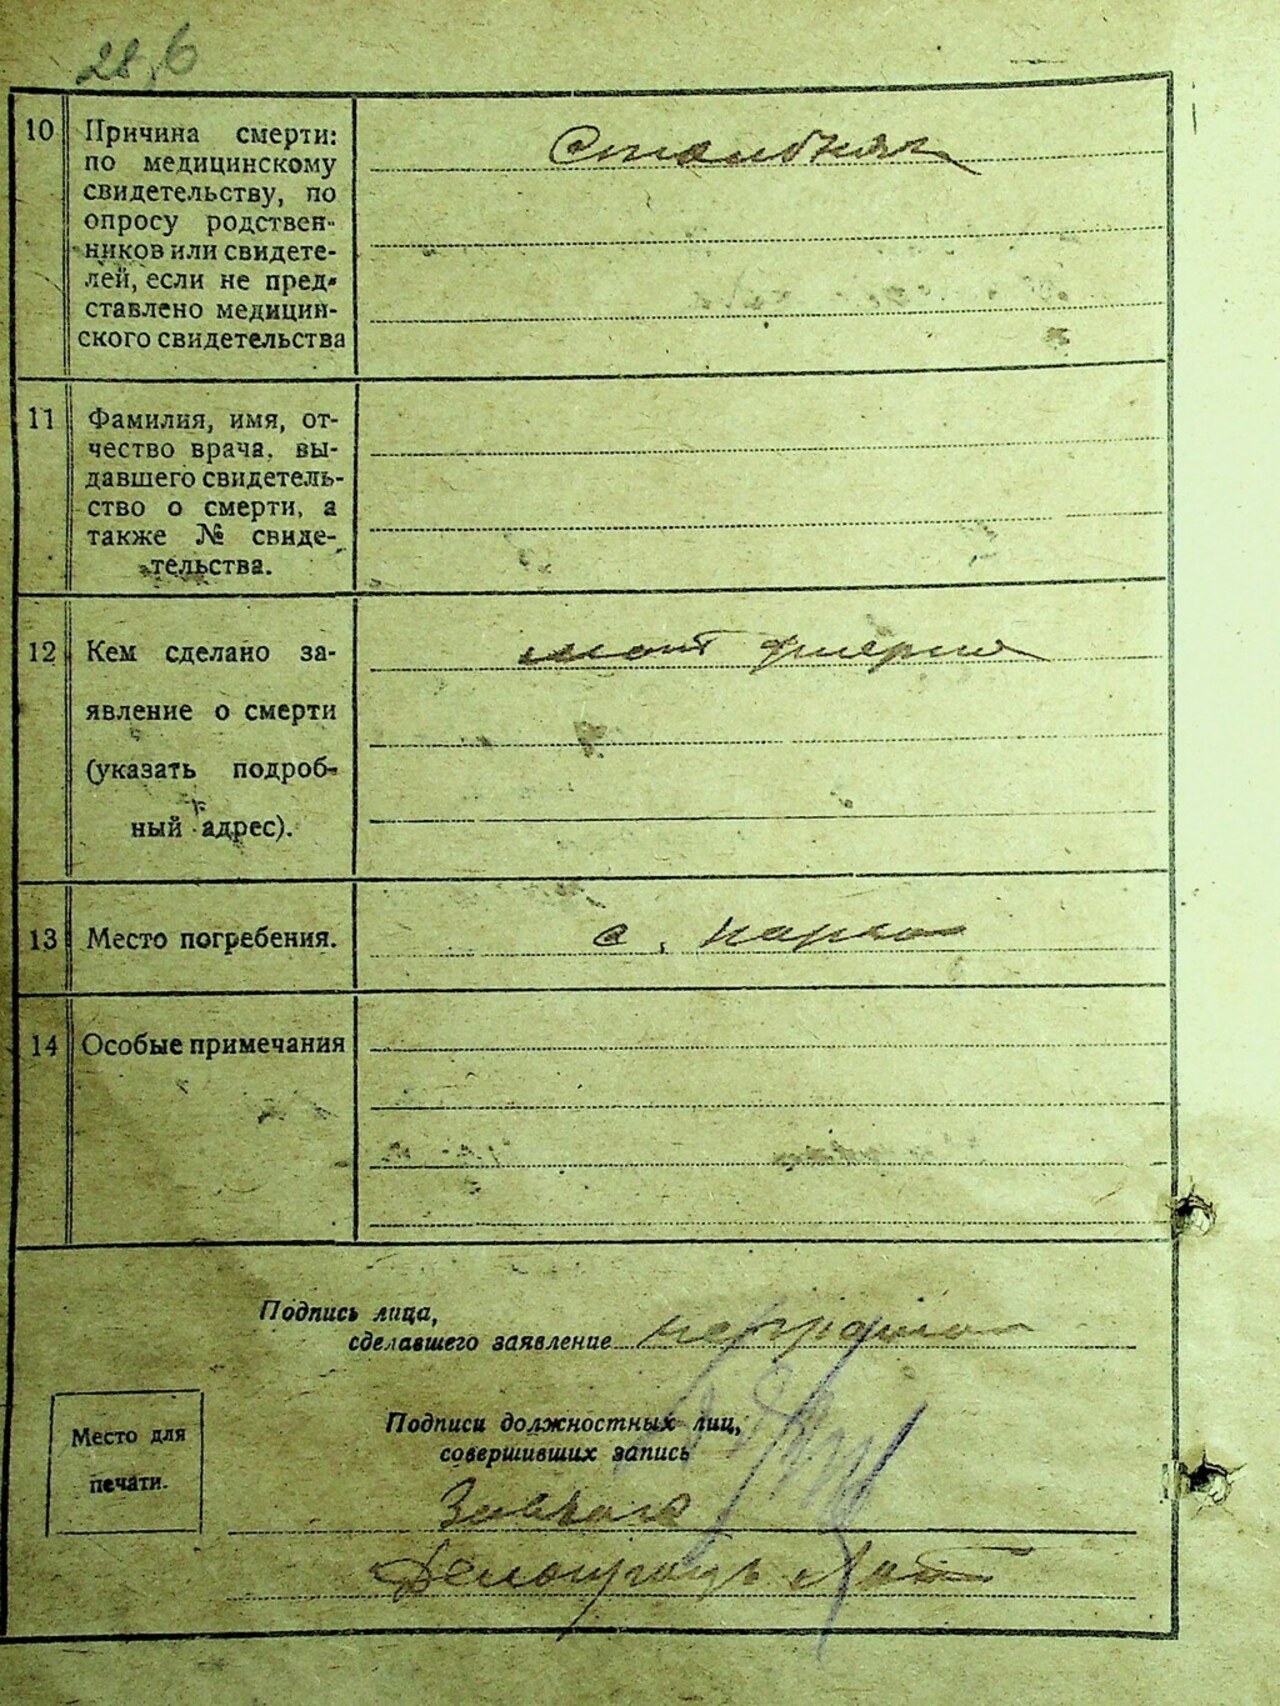 28,6
10 Причина смерти:
по медицинскому
свидетельству, по
опросу родствен-
ников или свидете-
лей, если не пред-
ставлено медицин-
ского свидетельства
Столбняк
11 Фамилия, имя, от-
чество врача, вы-
давшего свидетель-
ство о смерти, а
также № свиде-
тельства.
12 Кем сделано за-
явление о смерти
(указать подроб-
ный адрес).
мат умерше
13 Место погребения.
с.
14 Особые примечания
Подпись лица,
сделавшего заявление неграмотна
Подписи должностных лиц,
совершивших запись
Место для
печати.
Завзагс
Делопроизв